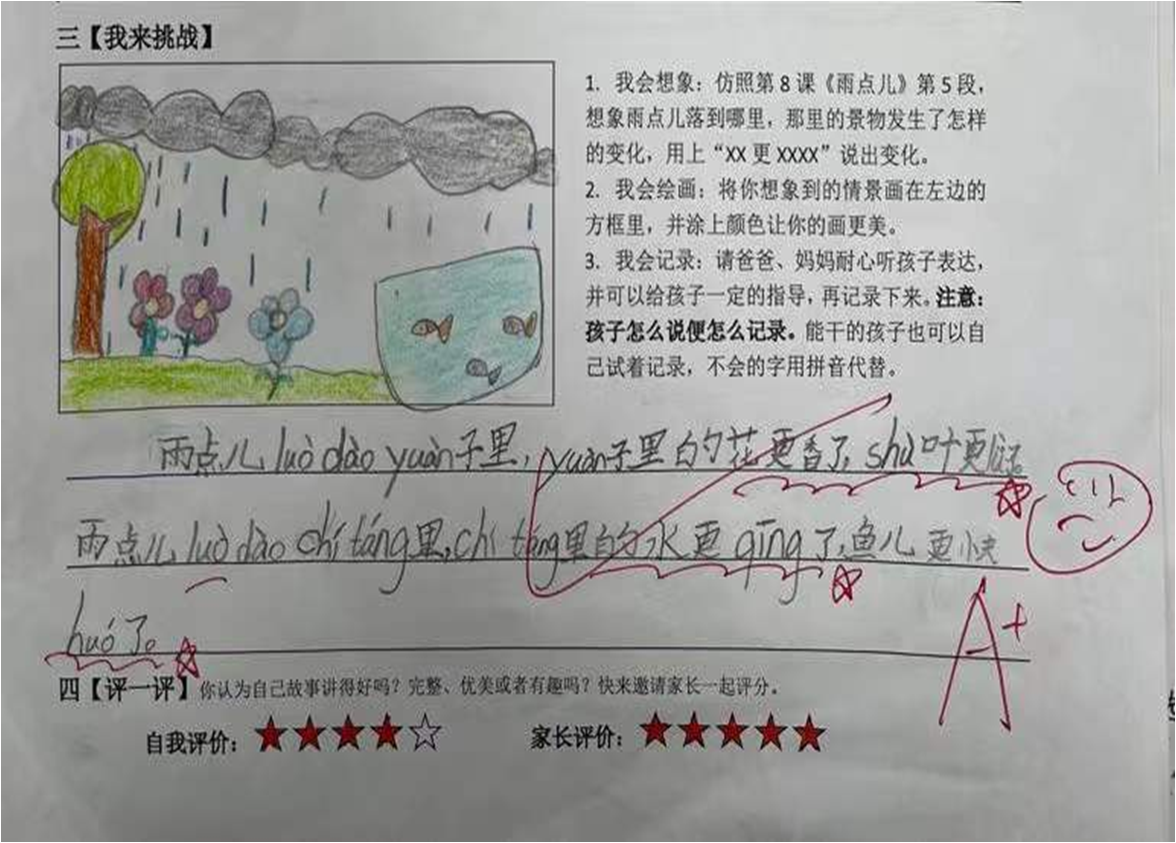 三【我来挑战】
1. 我会想象：仿照第8课《雨点儿》第5段，
想象雨点儿落到哪里，那里的景物发生了怎样
的变化，用上“XX更XXXX”说出变化。
2. 我会绘画：将你想象到的情景画在左边的
方框里，并涂上颜色让你的画更美。
3. 我会记录：请爸爸、妈妈耐心听孩子表达，
并可以给孩子一定的指导，再记录下来。注意：
孩子怎么说便怎么记录。能干的孩子也可以自
己试着记录，不会的字用拼音代替。
雨点儿luò dào yuàn子里，yuàn子里的花更香了，shù叶更
雨点儿luò dào chí táng里，chí táng里的水更qīng了，鱼儿更快
huó了。
A+
四【评一评】你认为自己故事讲得好吗？完整、优美或者有趣吗？快来邀请家长一起评分。
自我评价：★★★★☆ 家长评价：★★★★★